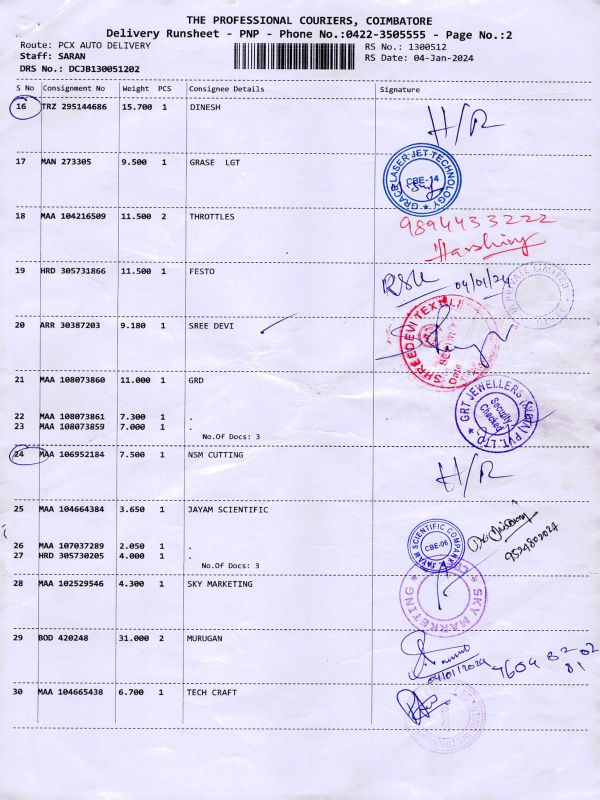 THE PROFESSIONAL COURIERS, COIMBATORE
Delivery Runsheet - PNP - Phone No.:0422-3505555 - Page No.:2
Route: PCX AUTO DELIVERY RS No.: 1300512
Staff: SARAN RS Date: 04-Jan-2024
DRS No.: DCJB130051202
S No Consignment No Weight PCS Consignee Details Signature
16 TRZ 295144686 15.700 1 DINESH H/R
17 MAN 273305 9.500 1 GRASE LGT
GRACE LASER JET TECHNOLOGY
CBE-14
18 MAA 104216509 11.500 2 THROTTLES 9894433222
19 HRD 305731866 11.500 1 FESTO 04/01/24
PRIVATE LIMITED
20 ARR 30387203 9.180 1 SREE DEVI
SHREEDEVI TEXTILE
Date
21 MAA 108073860 11.000 1 GRD
22 MAA 108073861 7.300 1 .
23 MAA 108073859 7.000 1 .
No.Of Docs: 3
GRT JEWELLERS PVT. LTD
Security
Checked
24 MAA 106952184 7.500 1 NSM CUTTING H/R
25 MAA 104664384 3.650 1 JAYAM SCIENTIFIC
26 MAA 107037289 2.050 1 .
27 HRD 305730205 4.000 1 .
No.Of Docs: 3
JAYAM SCIENTIFIC COMPANY
CBE-06
9524802024
28 MAA 102529546 4.300 1 SKY MARKETING
SKY MARKETING
29 BOD 420248 31.000 2 MURUGAN
04/01/2024
30 MAA 104665438 6.700 1 TECH CRAFT